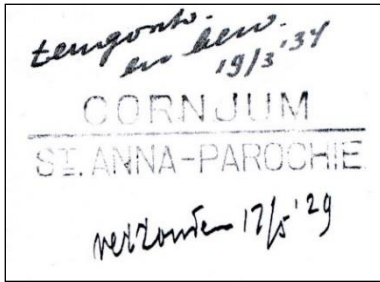 terugontv.
en bew.
19/3 '34
CORNJUM
ST. ANNA-PAROCHIE
verzonden 17/5 '29